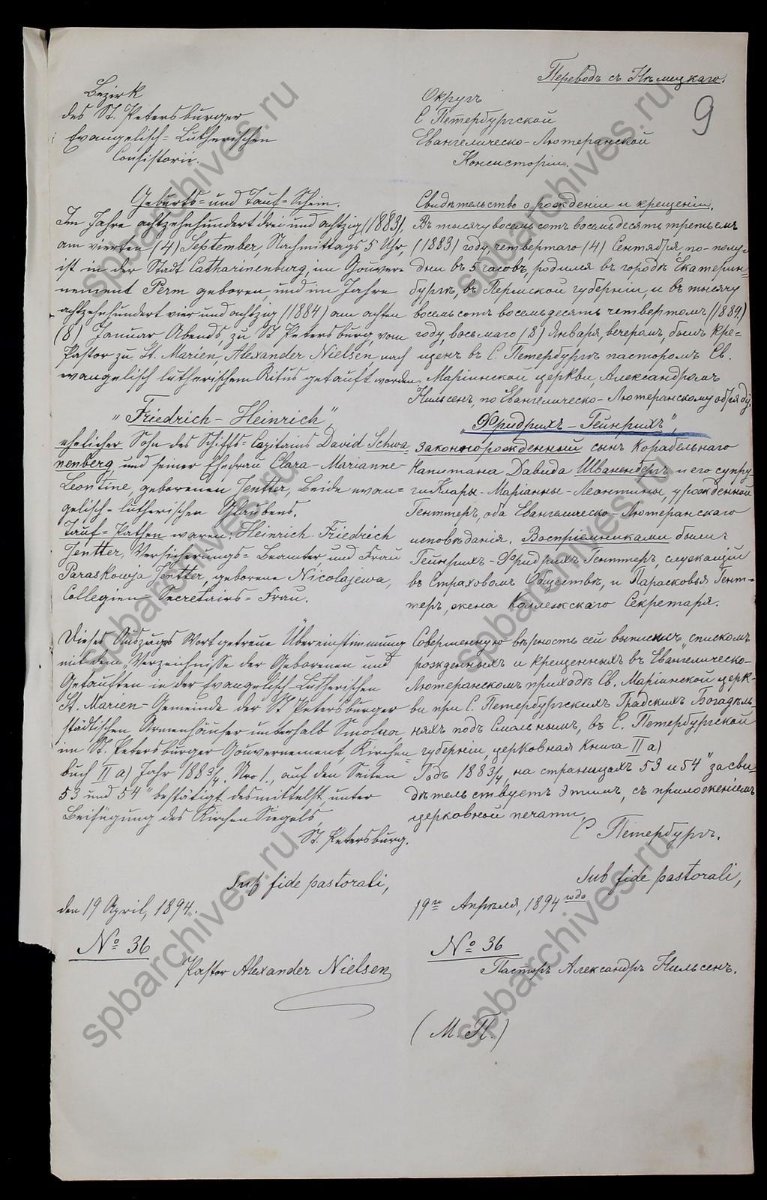 Переводъ съ Нѣмецкаго.
9
Bezirk
des St. Petersburger
Evangelisch-Lutherischen
Consistorii.
Geburts- und Tauf-Schein.
Im Jahre achtzehnhundert drei und achtzig (1883),
am vierten (4) September, Nachmittags 5 Uhr,
ist in der Stadt Catharinenburg, im Gouver-
nement Perm geboren und im Jahre
achtzehnhundert vier und achtzig (1884) am achten
(8) Januar Abends zu St Petersburg vom
Pastor zu St. Marien, Alexander Nielsen, nach
evangelisch lutherischem Ritus getauft worden
"Friedrich-Heinrich"
ehelicher Sohn des Schiffs-Capitains David Schwa-
nenberg und seiner Ehefrau Clara-Marianne
Leontine geborenen Jentter, Beide evan-
gelisch-lutherischen Glaubens.
Tauf-Pathen waren: Heinrich Friedrich
Jentter, Versicherungs-Beamter und Frau
Paraskowja Jentter geborene Nicolajewa,
Collegien-Secretairs-Frau.
Dieses Auszugs Wortgetreue Übereinstimmung
mit dem Verzeichnisse der Geborenen und
Getauften in der Evangelisch-Lutherischen
St. Marien-Gemeinde der St Petersburger
städtischen Armenhäuser unterhalb Smolna
im St. Petersburger Gouvernement, Kirchen-
buch II a) Jahr 1883/4, Nro 1, auf den Seiten
53 und 54" bestätigt desmittelst unter
Beifügung des Kirchen Siegels,
St. Petersburg.
Sub fide pastorali,
den 19 April, 1894.
№ 36
Pastor Alexander Nielsen
Округъ
С Петербургской
Евангелическо-Лютеранской
Консисторіи.
Свидѣтельство о рожденіи и крещеніи.
Въ тысячу восемьсотъ восемьдесятъ третьемъ
(1883) году, четвертаго (4) Сентября, по-полу-
дни въ 5 часовъ, родился въ городѣ Екатерин-
бургѣ, въ Пермской губерніи и въ тысячу
восемьсотъ восемьдесятъ четвертомъ (1884)
году, восьмаго (8) Января, вечеромъ, былъ кре-
щенъ въ С. Петербургѣ пасторомъ Св.
Маріинской церкви, Александромъ
Нильсенъ, по Евангелическо-Лютеранскому обряду
"Фридрихъ-Гейнрихъ",
законнорожденный сынъ Корабельнаго
Капитана Давида Шваненбергъ и его супру-
ги Клары-Маріанны-Леонтины, урожденной
Генттеръ, оба Евангелическо-Лютеранскаго
исповѣданія. Воспріемниками были:
Гейнрихъ-Фридрихъ Гентеръ, служащій
въ Страховомъ Обществѣ, и Парасковья Гент-
теръ, жена Коллежскаго Секретаря.
Совершенную вѣрность сей выписки "съ спискомъ
рожденныхъ и крещенныхъ въ Евангелическо-
Лютеранскомъ приходѣ Св. Маріинской церк-
ви при С. Петербургскихъ Градскихъ Богадѣль-
няхъ подъ Смольнымъ, въ С. Петербургской
губерніи, церковная Книга II а)
Годъ 1883/4, на страницахъ 53 и 54" засви-
дѣтельствуетъ этимъ, съ приложеніемъ
церковной печати,
С Петербургъ.
Sub fide pastorali,
19го Апрѣля, 1894 года
№ 36
Пасторъ Александръ Нильсенъ.
(М. П.)